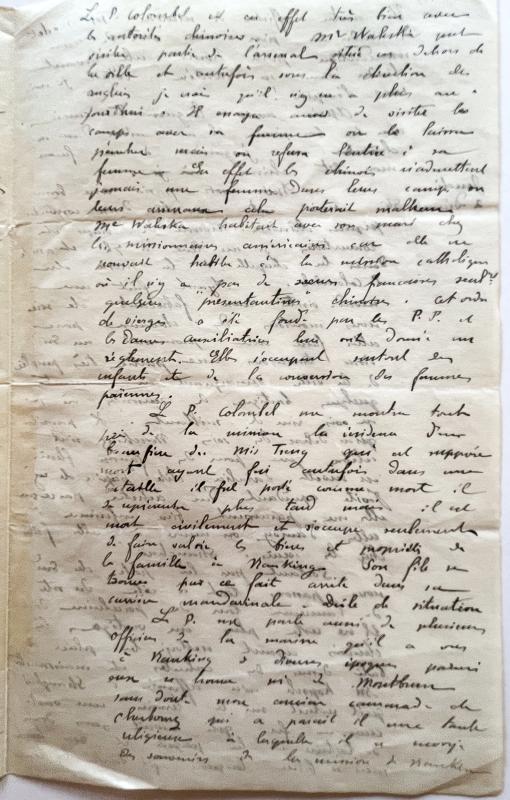 Le P. Colombel est en effet très bien avec
les autorités chinoises. Mr Wahska peut
visiter partie de l'arsenal située en dehors de
la ville et autrefois sous la direction des
anglais je crois qu'il n'y en a plus au-
jourd'hui. Il essaya aussi de visiter les
camps avec sa femme on le laissa
pénétrer mais on refusa l'entrée à sa
femme. En effet les chinois n'admettent
jamais une femme dans leurs camps ou
leurs arsenaux cela porterait malheur.
Me Wahska habitait avec son mari chez
les missionnaires américains car elle ne
pouvait habiter à la mission catholique
où il n'y a pas de sœurs françaises seult
quelques "présentandines" chinoises. Cet ordre
de vierges a été fondé par les P.P. et
les Dames auxiliatrices leur ont donné un
règlement. Elles s'occupent surtout des
enfants et de la conversion des femmes
païennes.
Le P. Colombel me montre tout
près de la mission la résidence d'un
beau frère de Mis Tseng qui est supposé
mort ayant fui autrefois dans une
bataille il fut porté comme mort il
se représenta plus tard mais il est
mort civilement et s'occupe seulement
de faire valoir les biens et propriétés de
la famille à Nanking. Son fils se
trouve par ce fait arrêté dans sa
carrière mandarinale. Drôle de situation
Le P. me parle aussi de plusieurs
officiers de la marine qu'il a vus
à Nanking à diverses époques parmi
eux se trouve un de Montbrun
sans doute mon ancien camarade de
Cherbourg qui a paraît il une tante
religieuse à laquelle il a envoyé
des souvenirs de la mission de Nanking